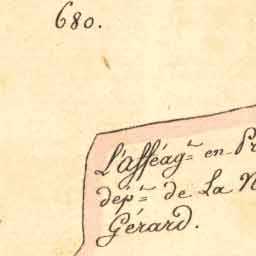 680.
L'afféag.^t en Pr
dép.^t de La N
Gérard.